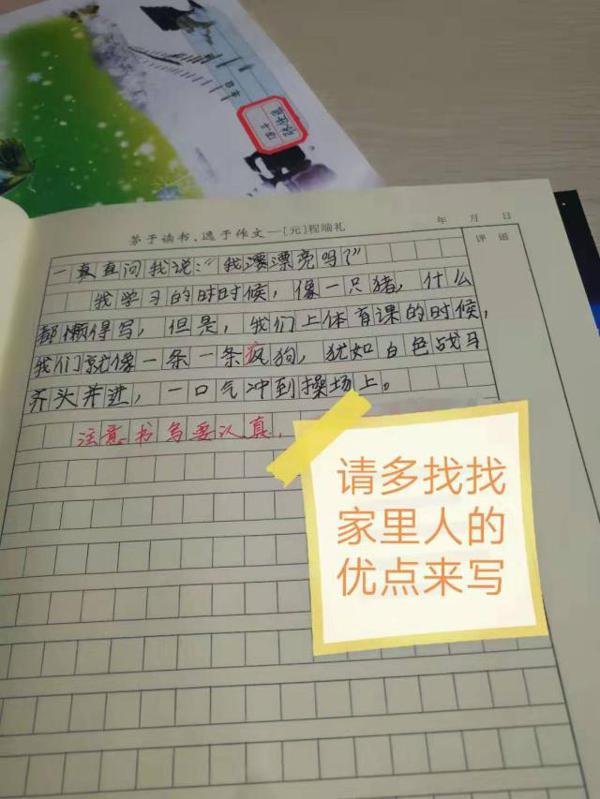 苦于读书、逸于作文—[元]程端礼
年 月 日
评 语
一直直问我说:“我漂漂亮吗?”
我学习的时时候,像一只猪,什么
都懒得写,但是,我们上体育课的时候,
我们就像一条一条疯狗,犹如白色战马
齐头并进,一口气冲到操场上。
注意书写要认真,
请多找找
家里人的
优点来写